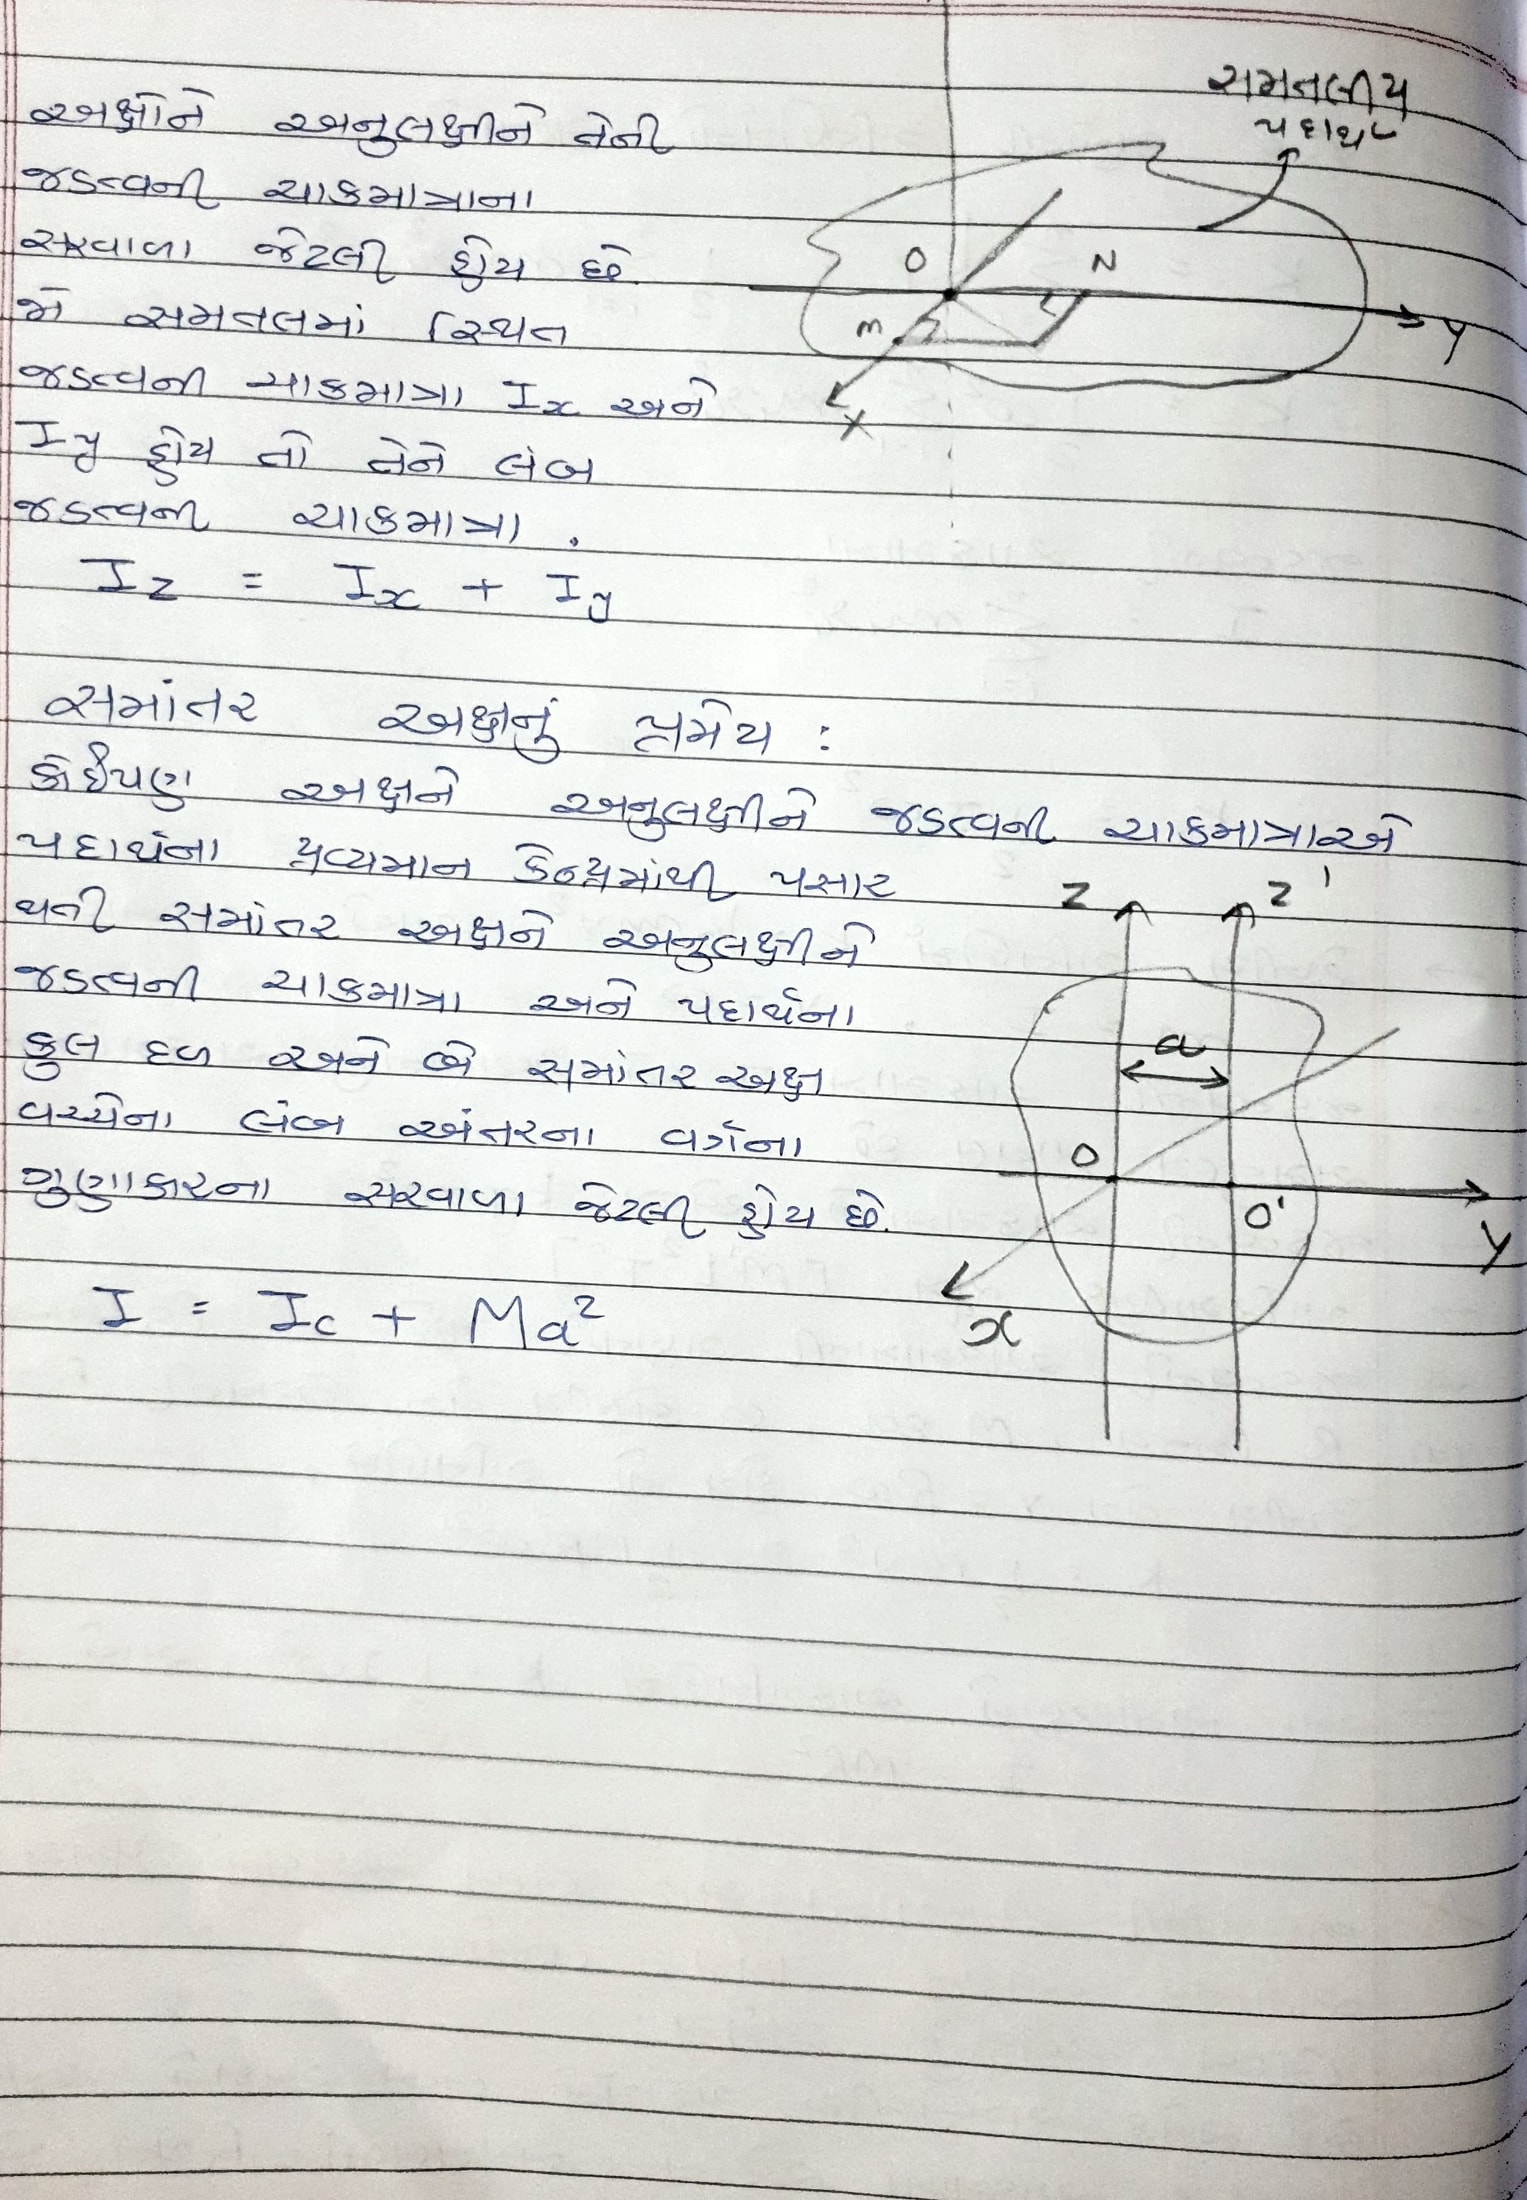 અક્ષોને અનુલક્ષીને તેની
જડત્વની ચાકમાત્રાના
સરવાળા જેટલી હોય છે.
જો સમતલમાં સ્થિત
જડત્વની ચાકમાત્રા Ix અને
Iy હોય તો તેને લંબ
જડત્વની ચાકમાત્રા .
Iz = Ix + Iy
સમતલીય
પદાર્થ
O
N
M
Y
X
સમાંતર અક્ષનું પ્રમેય :
કોઈપણ અક્ષને અનુલક્ષીને જડત્વની ચાકમાત્રાએ
પદાર્થના દ્રવ્યમાન કેન્દ્રમાંથી પસાર
થતી સમાંતર અક્ષને અનુલક્ષીને
જડત્વની ચાકમાત્રા અને પદાર્થના
કુલ દળ અને બે સમાંતર અક્ષ
વચ્ચેના લંબ અંતરના વર્ગના
ગુણાકારના સરવાળા જેટલી હોય છે.
I = Ic + Ma²
Z
Z'
a
O
O'
Y
x